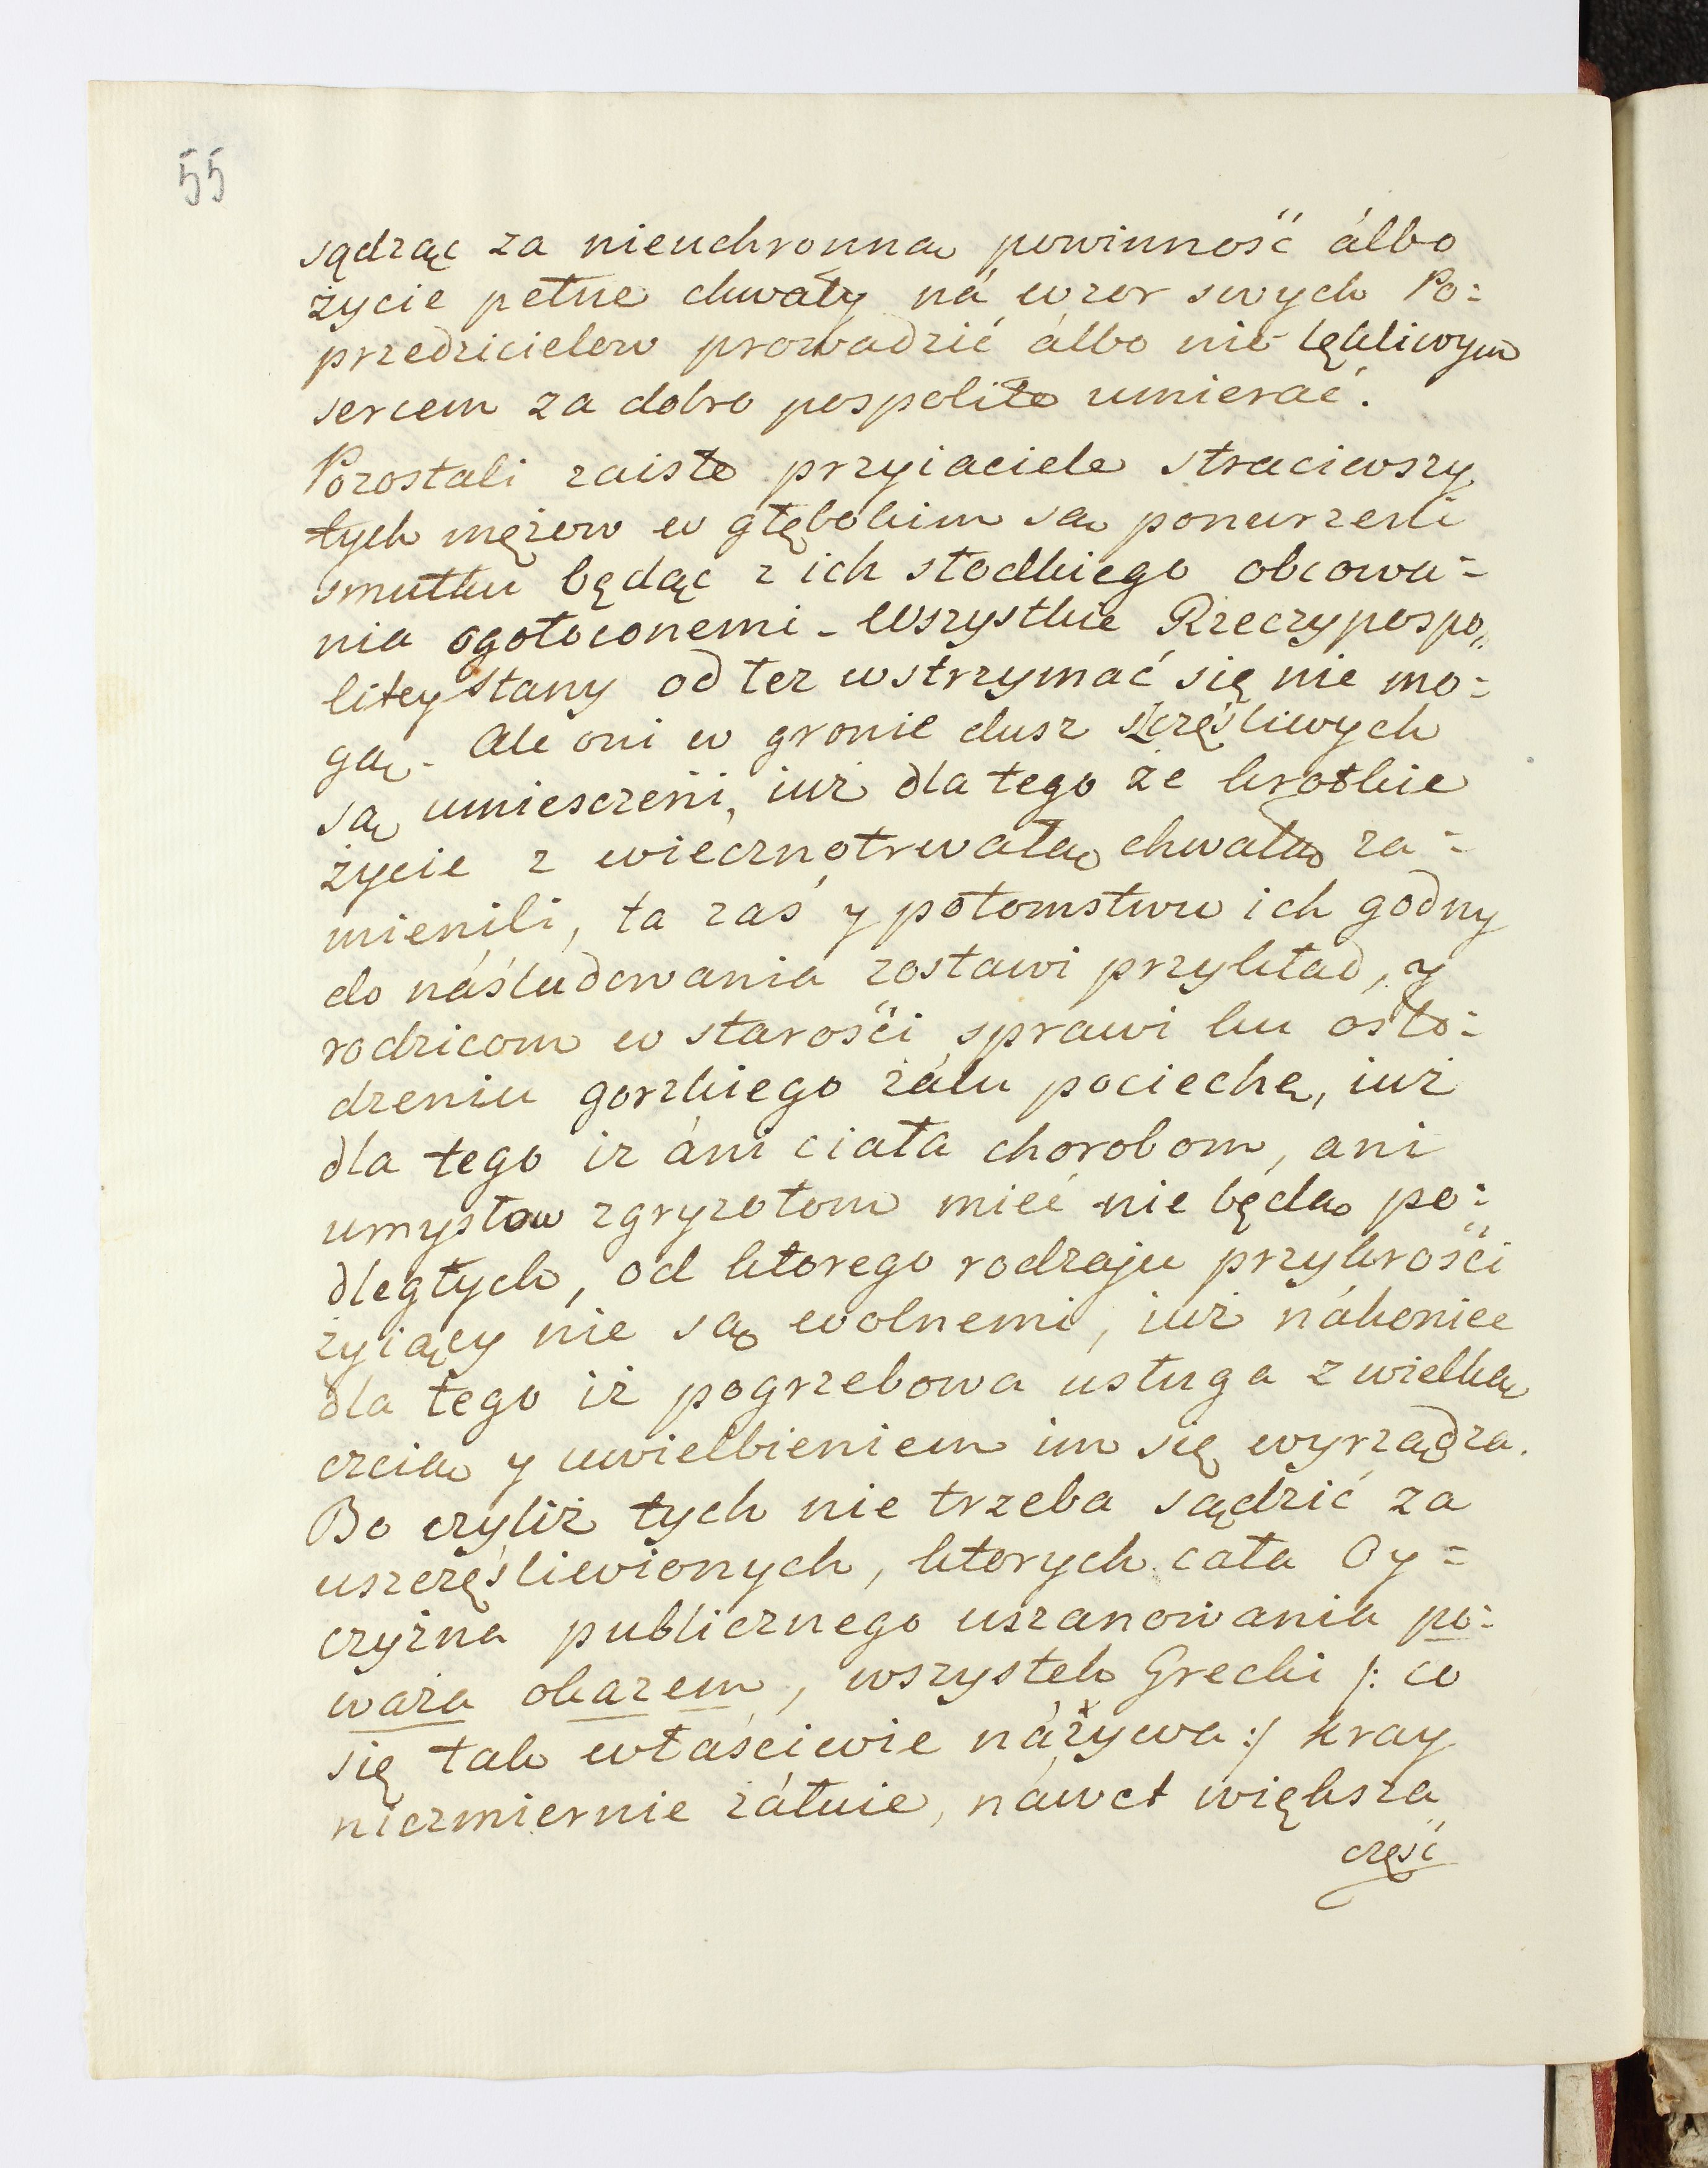 55
sądząc za nieuchronną powinność álbo
życie pełne chwały ná wzor swych Po=
przedzicielow prowadzić álbo nie lękliwym
sercem za dobro pospolite umierać.
Pozostali zaiste przyiaciele straciwszy
tych mężow w głębokim są ponurzeni
smutku będąc z ich słodkiego obcowa=
nia ogołoconemi - Wszystkie Rzeczypospo„
litey stany od łez wstrzymać się nie mo=
gą. Ale oni w gronie dusz szczęśliwych
są umiesczeni, iuż dla tego że krotkie
życie z wiecznotrwałą chwałą za=
mienili, ta zaś y potomstwu ich godny
do náśladowania zostawi przykład, y
rodzicom w starości sprawi ku osło=
dzeniu gorzkiego żalu pociechę, iuż
dla tego iż áni ciała chorobom, ani
umysłow zgryzotom mieć nie będą po=
dległych, od ktorego rodzaju przykrości
żyiący nie są wolnemi, iuż nákoniec
dla tego iż pogrzebowa usługa z wielką
czcią y uwielbieniem im się wyrządza.
Bo czyliż tych nie trzeba sądzić za
uszczęśliwionych, ktorych cała Oy=
czyzna publicznego uszanowania po=
waża okazem, wszystek Grecki /: co
się tak właściwie názywa :/ kray
niezmiernie żáłuie, náwet większa
część